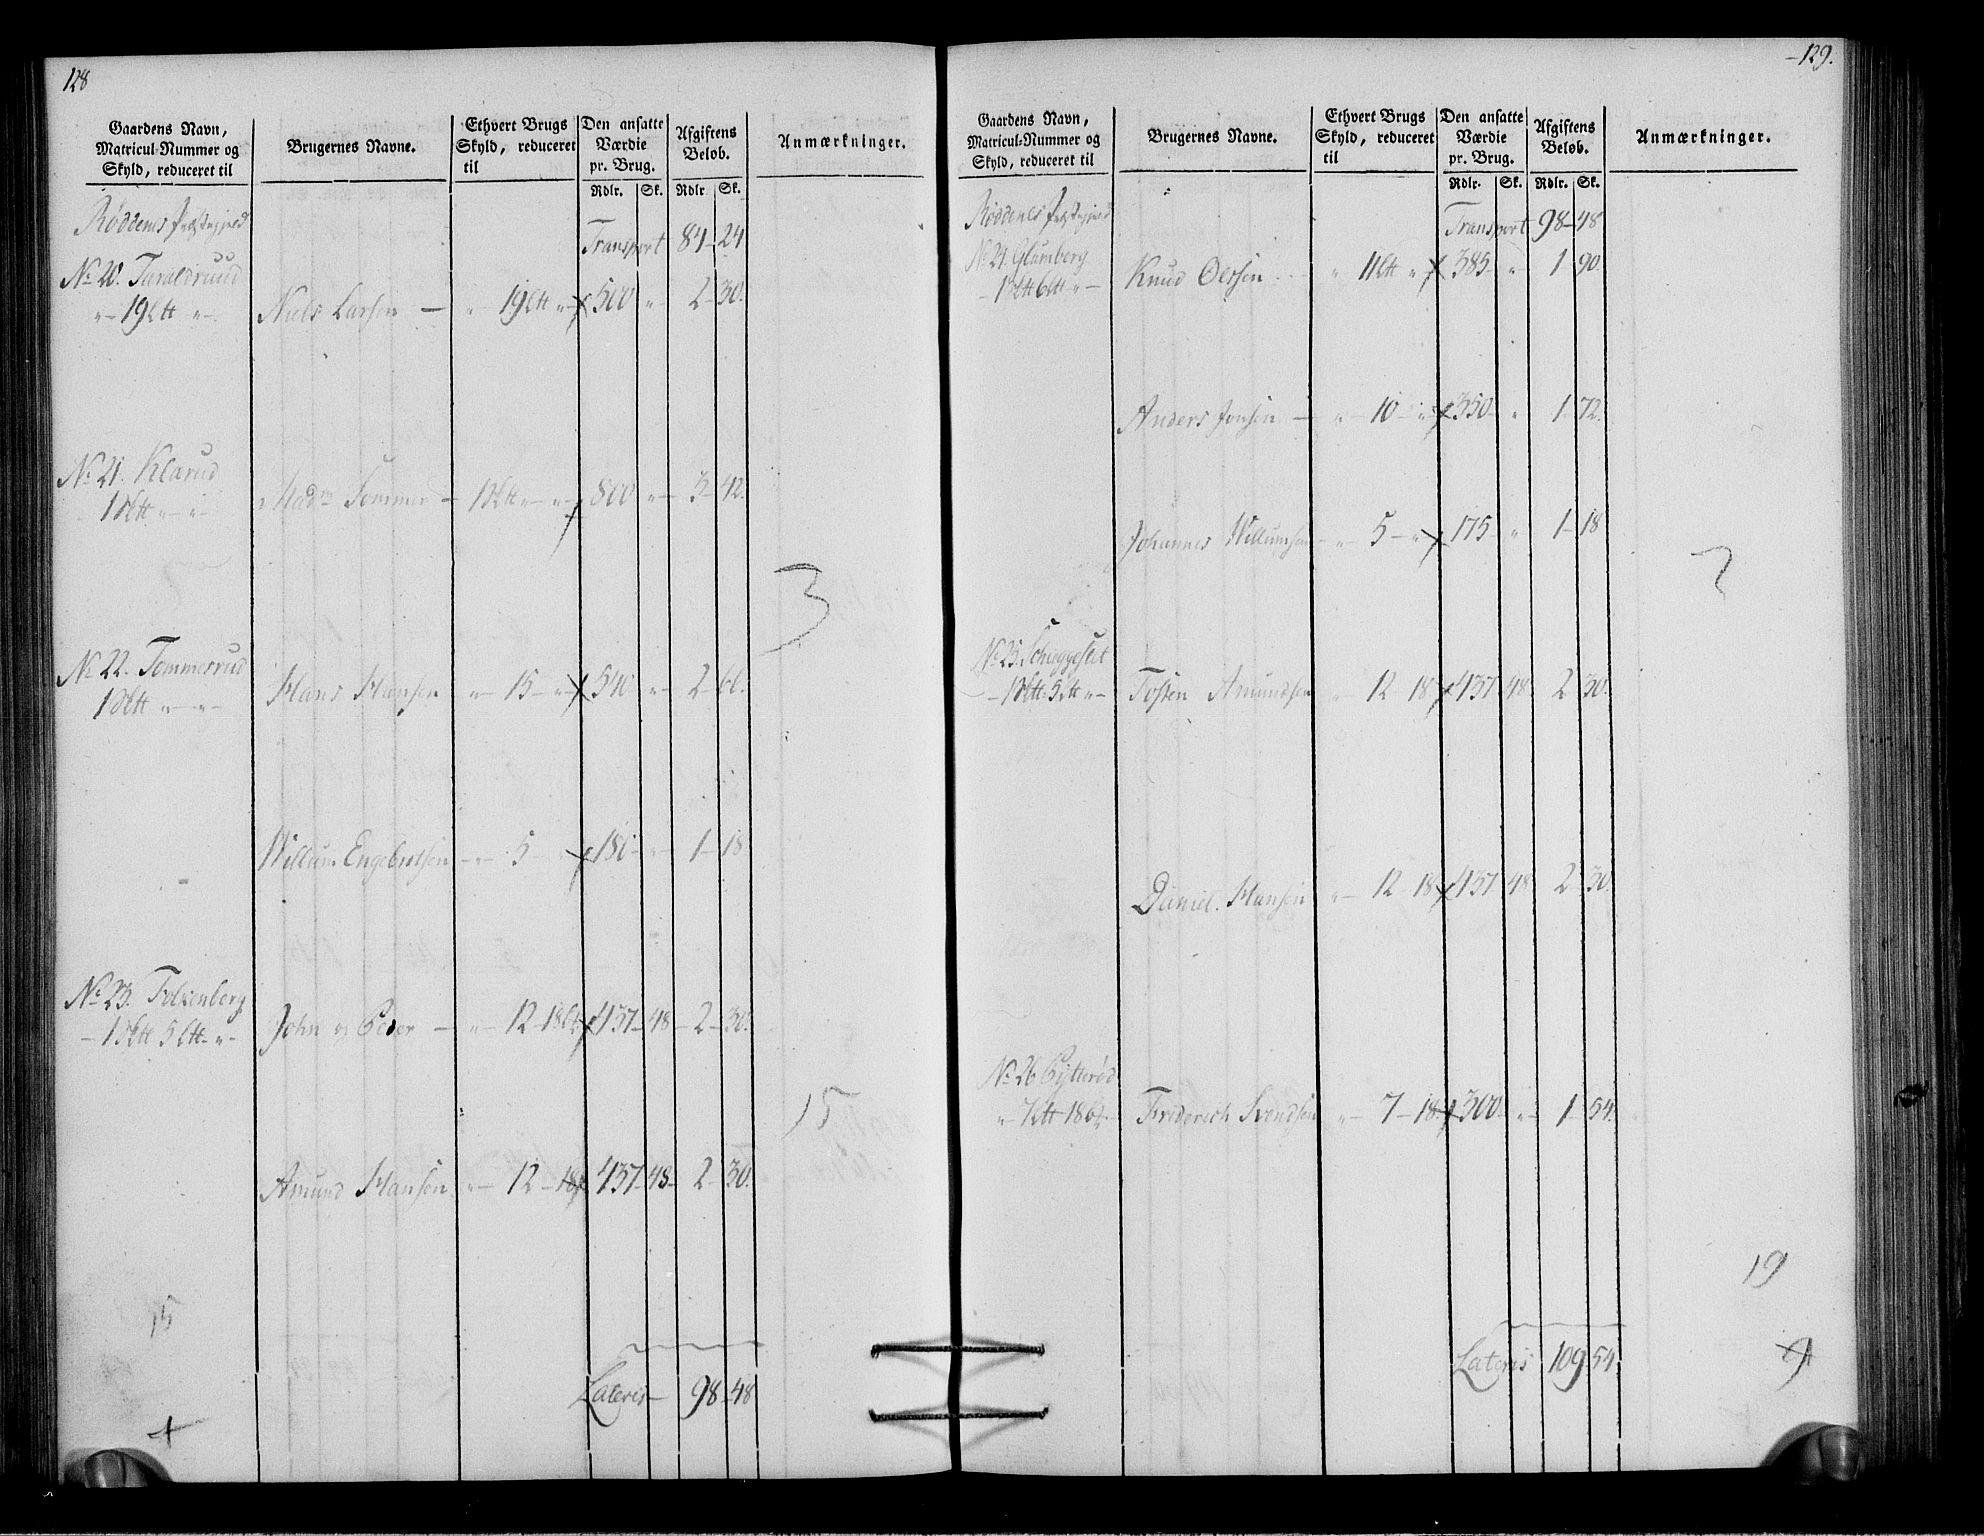 128
Gaardens Navn, Matricul-Nummer og Skyld, reduceret til | Brugernes Navne. | Ethvert Brugs Skyld, reduceret til | Den ansatte Værdie pr. Brug. | Afgiftens Beløb. | Anmærkninger.
Rdlr. Sk. Rdlr Sk.
Røddenes Præstegjeld
Transport 84 - 24
No 20. Taraldruud
" 19 Ltt " Niels Larsen — " 19 Ltt " 500 " 2 - 30.
No 21. Klarud
1 Skltt " " Madm Sommer — 1 Skltt " " 800 " 3 - 42.
3
No 22. Tommesrud
1 Skltt " " Hans Hansen " 15 " 540 " 2 - 66.
Willum Engebretsen " 5 " 180 " 1 - 18
No 23. Folkenborg
1 Skltt 5 Ltt " John og Peder — " 12 - 18 437 - 48 - 2 - 30.
15
Amund Hansen " 12 - 18 437 - 48 - 2 - 30.
15
Lateris — 98 - 48
129.
Gaardens Navn, Matricul-Nummer og Skyld, reduceret til | Brugernes Navne. | Ethvert Brugs Skyld, reduceret til | Den ansatte Værdie pr. Brug. | Afgiftens Beløb. | Anmærkninger.
Rdlr. Sk. Rdlr. Sk.
Røddenes Præstegjeld
Transport 98 - 48
No 24. Glumberg
1 Skltt 6 Ltt " Knud Olssen " 11 Ltt " 385 " 1 90.
Anders Jonsen — " 10 " 350 " 1 - 72.
Johannes Willumsen " 5 " 175 " 1 - 18
No 25. Schiøggestet
1 Skltt 5 Ltt " Tosten Amundsen " 12 18 437 48 2 30.
Daniel Hansen " 12 - 18 437 48 2 - 30.
No 26 Gytterød
" 7 Ltt 18 Friderich Svendsen " 7 - 18 300 " 1 - 54.
19
Lateris 109 54